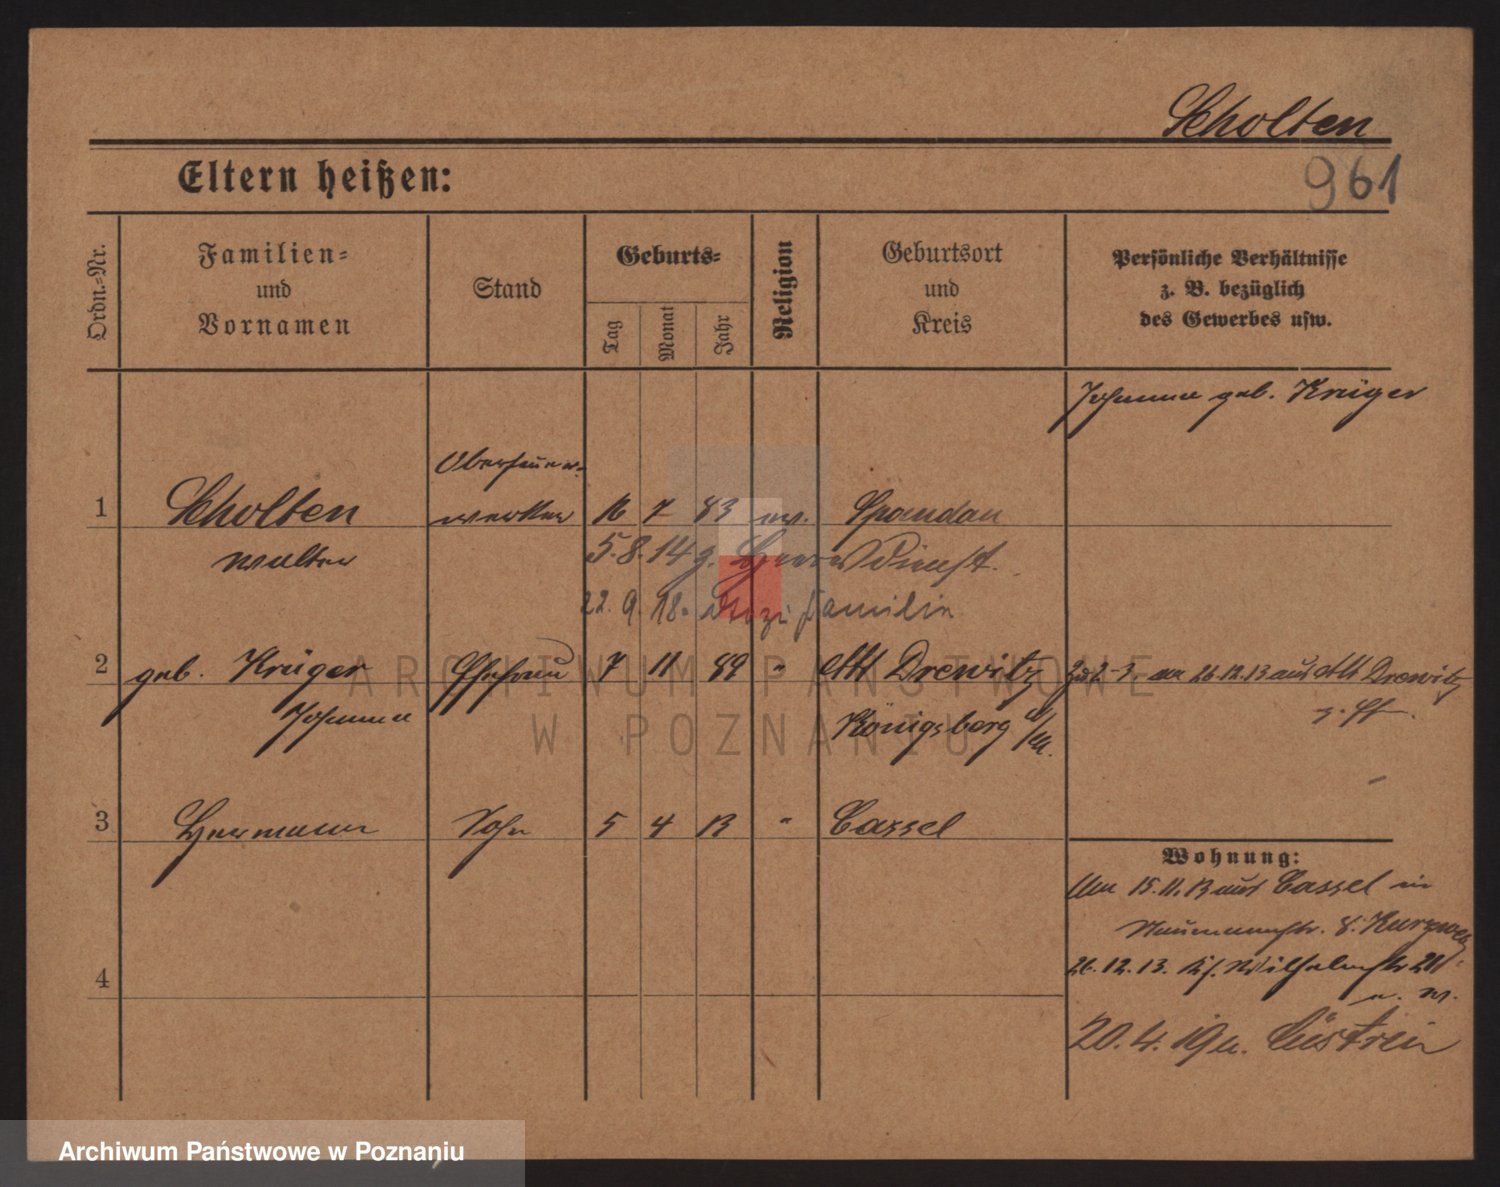 Scholten
961
Eltern heißen:
Ordn.-Nr.
Familien-
und
Vornamen
Stand
Geburts-
Tag
Monat
Jahr
Religion
Geburtsort
und
Kreis
Persönliche Verhältnisse
z. B. bezüglich
des Gewerbes usw.
Johanna geb. Krüger
Oberfeuer-
1 Scholten werker 16 7 83 ev. Spandau
Walter
5.8.14 z. Heeres Dienst.
22. 9. 18. Familie
2 geb. Krüger Ehefrau 7 11 89 " Alt Drewitz
Johanna
Königsberg
Zu 2-3. am 26.12.13 aus Alt Drewitz
3 Hermann Sohn 5 4 13 " Cassel
Wohnung:
Am 15.11.13 aus Cassel in
Naumannstr. 8.
26.12.13. Wilhelmstr
4
20.4.19 n. Cüstrin
ARCHIWUM PAŃSTWOWE
W POZNANIU
Archiwum Państwowe w Poznaniu